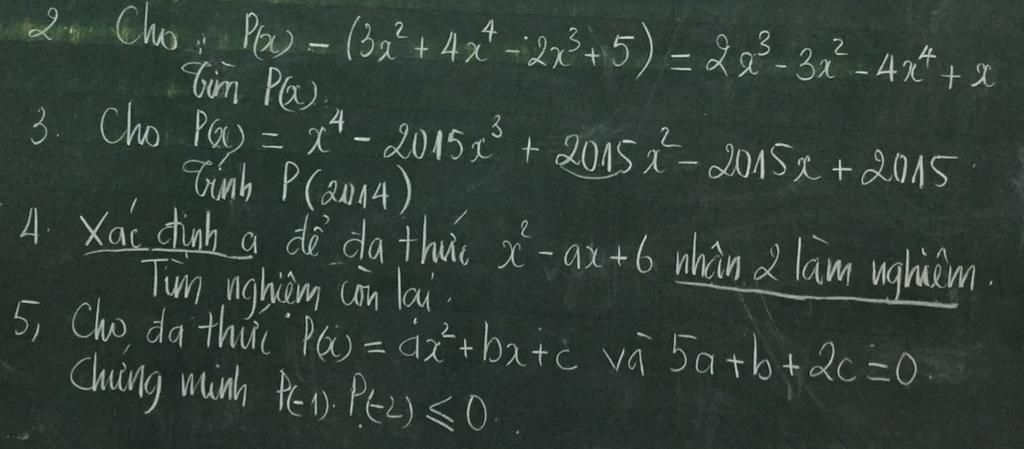 2. Cho: P(x) - (3x² + 4x⁴ - 2x³ + 5) = 2x³ - 3x² - 4x⁴ + x
Tìm P(x).
3. Cho P(x) = x⁴ - 2015x³ + 2015x² - 2015x + 2015
Tính P(2014)
4. Xác định a để đa thức x² - ax + 6 nhân 2 làm nghiệm.
Tìm nghiệm còn lại.
5, Cho đa thức P(x) = ax² + bx + c và 5a + b + 2c = 0.
Chứng minh P(-1). P(-2) ⩽ 0.